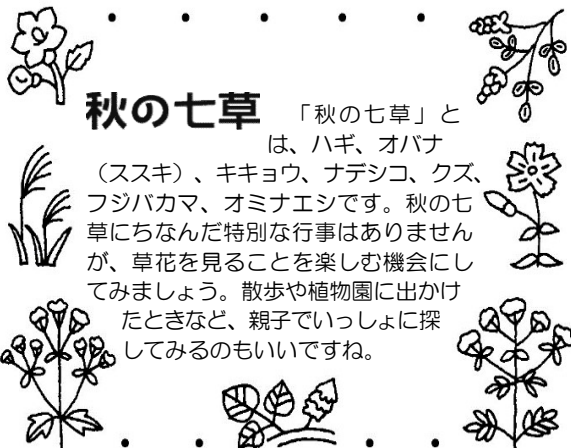 秋の七草
「秋の七草」と
は、ハギ、オバナ
（ススキ）、キキョウ、ナデシコ、クズ、
フジバカマ、オミナエシです。秋の七
草にちなんだ特別な行事はありません
が、草花を見ることを楽しむ機会にし
てみましょう。散歩や植物園に出かけ
たときなど、親子でいっしょに探
してみるのもいいですね。